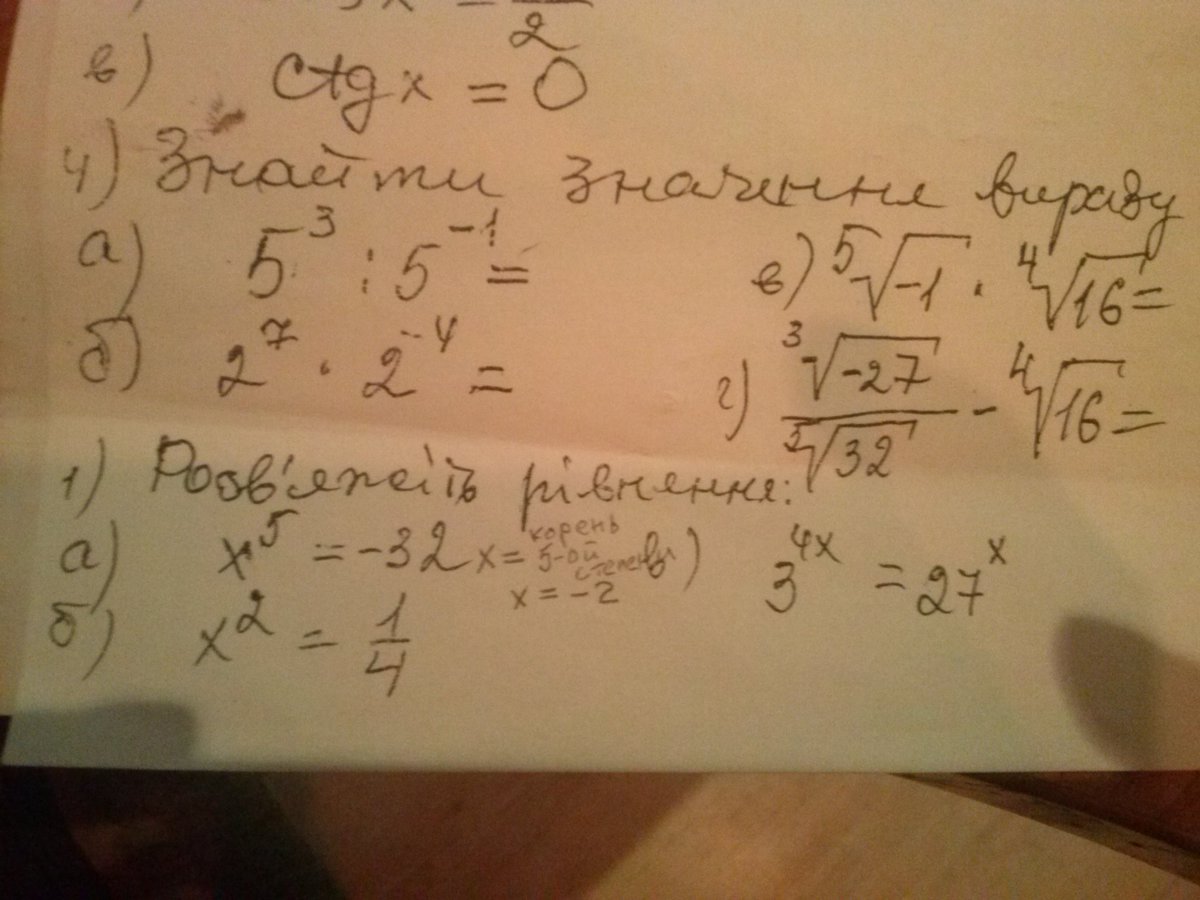 3x = — 2
в) ctg x = 0
4) Знайти значення виразу
а) 5³ : 5⁻¹ =
б) 2⁷ · 2⁻⁴ =
в) ⁵√-1 · ⁴√16 =
г) ³√-27 / ⁵√32 - ⁴√16 =
1) Розв'яжіть рівняння:
а) x⁵ = -32 x = корень 5-ой степени
x = -2
б) x² = 1/4
в) 3⁴ˣ = 27ˣ